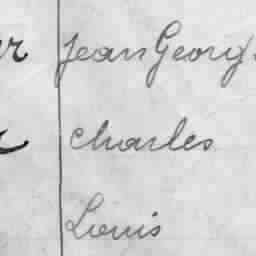 Jean Georg
charles
Louis